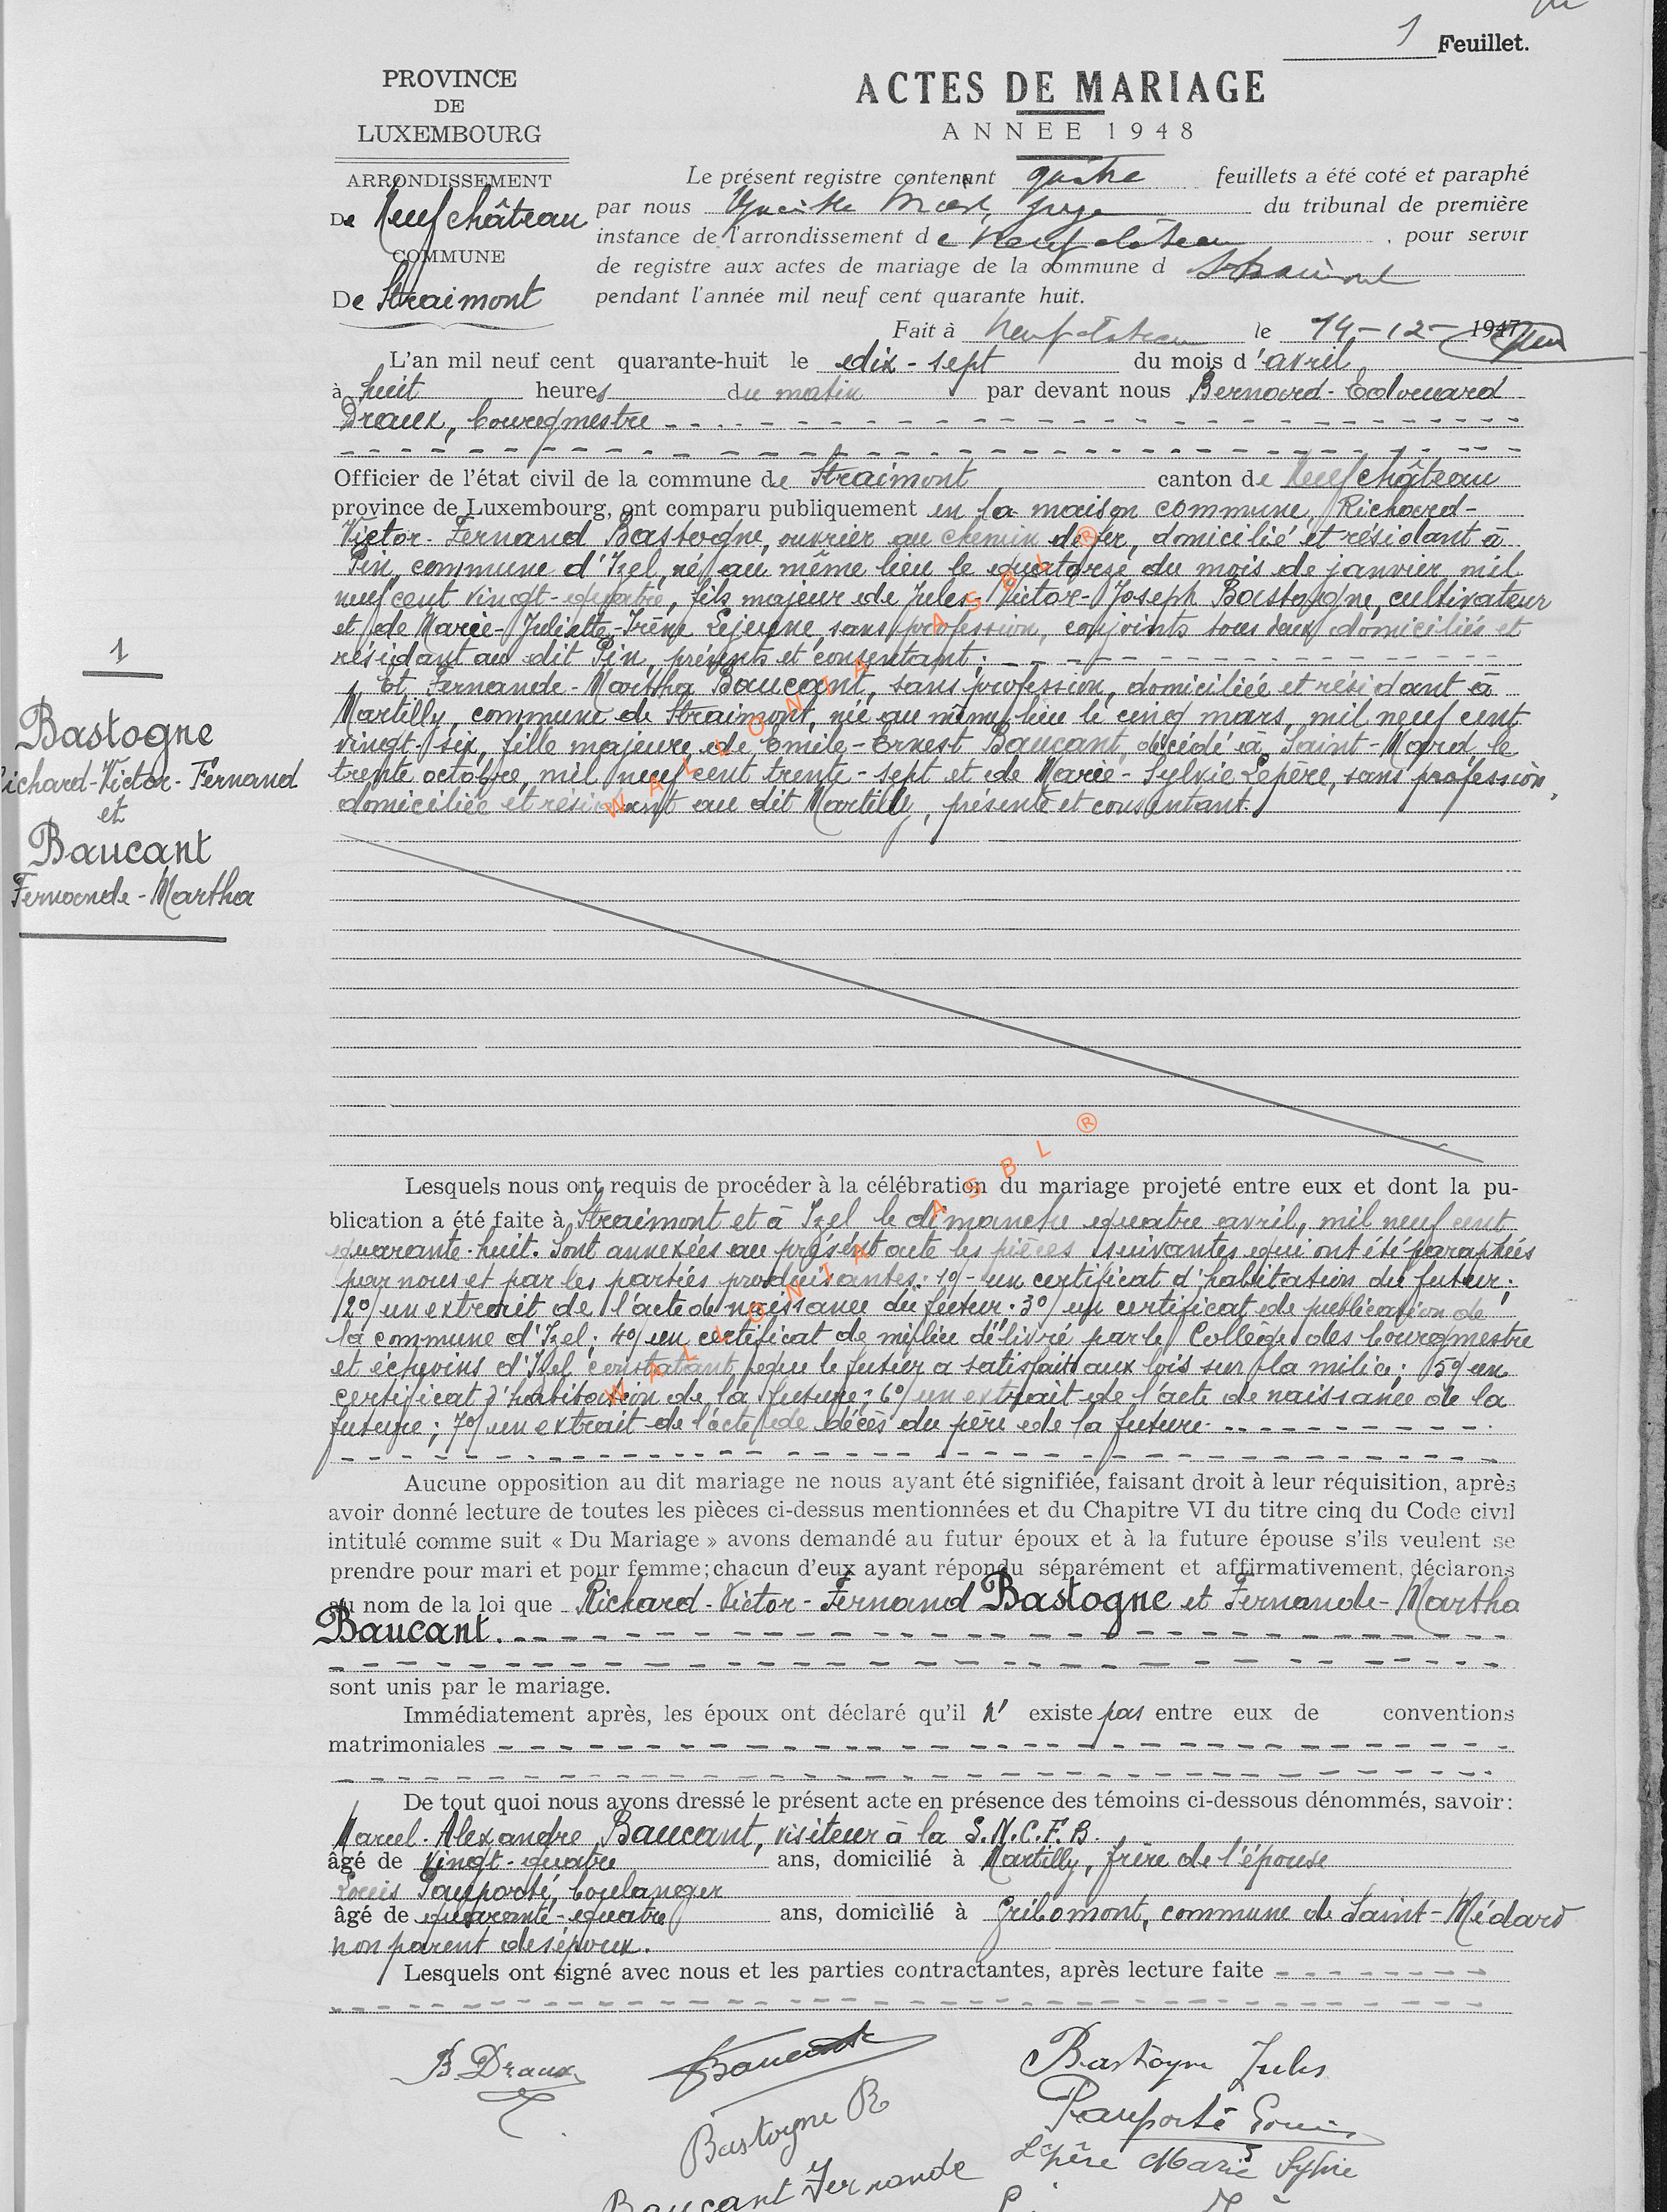 1 Feuillet.
PROVINCE
DE
LUXEMBOURG
ARRONDISSEMENT
De Neufchâteau
COMMUNE
De Straimont
ACTES DE MARIAGE
ANNEE 1948
Le présent registre contenant quatre feuillets a été coté et paraphé
par nous juge du tribunal de première
instance de l'arrondissement de Neufchâteau, pour servir
de registre aux actes de mariage de la commune d Straimont
pendant l'année mil neuf cent quarante huit.
Fait à Neufchâteau le 14-12-1947
L'an mil neuf cent quarante-huit le dix-sept du mois d'avril
à huit heures du matin par devant nous Bernard-Edouard
Draux, bourgmestre
Officier de l'état civil de la commune de Straimont canton de Neufchâteau
province de Luxembourg, ont comparu publiquement en la maison commune, Richard-
Victor-Fernand Bastogne, ouvrier au chemin de fer, domicilié et résidant à
Pin, commune d'Izel, né au même lieu le quatorze du mois de janvier mil
neuf cent vingt-quatre, fils majeur de Jules-Victor-Joseph Bastogne, cultivateur
et de Marie-Juliette-Irène Lejeune, sans profession, conjoints tous deux domiciliés et
résidant au dit Pin, présents et consentant;
et Fernande-Martha Baucant, sans profession, domiciliée et résidant à
Martilly, commune de Straimont, née au même lieu le cinq mars, mil neuf cent
vingt-six, fille majeure de Emile-Ernest Baucant, décédé à Saint-Mard, le
trente octobre, mil neuf cent trente-sept et de Marie-Sylvie Lepère, sans profession,
domiciliée et résidant au dit Martilly, présente et consentant.
1
Bastogne
Richard-Victor-Fernand
et
Baucant
Fernande-Martha
Lesquels nous ont requis de procéder à la célébration du mariage projeté entre eux et dont la pu-
blication a été faite à Straimont et à Izel le dimanche quatre avril, mil neuf cent
quarante-huit. Sont annexées au présent acte les pièces suivantes qui ont été paraphées
par nous et par les parties produisantes: 1° - un certificat d'habitation du futur;
2° un extrait de l'acte de naissance du futur. 3° un certificat de publication de
la commune d'Izel; 4° un certificat de milice délivré par le Collège des bourgmestre
et échevins d'Izel constatant que le futur a satisfait aux lois sur la milice; 5° un
certificat d'habitation de la future; 6° un extrait de l'acte de naissance de la
future; 7° un extrait de l'acte de décès du père de la future.
Aucune opposition au dit mariage ne nous ayant été signifiée, faisant droit à leur réquisition, après
avoir donné lecture de toutes les pièces ci-dessus mentionnées et du Chapitre VI du titre cinq du Code civil
intitulé comme suit « Du Mariage » avons demandé au futur époux et à la future épouse s'ils veulent se
prendre pour mari et pour femme; chacun d'eux ayant répondu séparément et affirmativement, déclarons
au nom de la loi que Richard-Victor-Fernand Bastogne et Fernande-Martha
Baucant.
sont unis par le mariage.
Immédiatement après, les époux ont déclaré qu'il n'existe pas entre eux de conventions
matrimoniales
De tout quoi nous avons dressé le présent acte en présence des témoins ci-dessous dénommés, savoir:
Marcel-Alexandre Baucant, visiteur à la S.N.C.F.B.
âgé de vingt-quatre ans, domicilié à Martilly, frère de l'épouse
Louis Pauporté, boulanger
âgé de quarante-quatre ans, domicilié à Gribomont, commune de Saint-Médard
non parent des époux.
Lesquels ont signé avec nous et les parties contractantes, après lecture faite
B. Draux
Baucant
Bastogne Jules
Bastogne R
Pauporté Louis
Lepère Marie Sylvie
Baucant Fernande
WALLONIA ASBL ®
WALLONIA ASBL ®